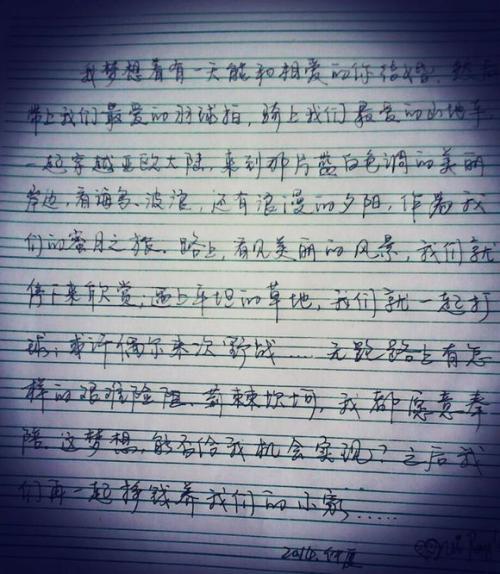 我梦想着有一天能和相爱的你结婚，然后
带上我们最爱的羽球拍，骑上我们最爱的山地车
一起穿越亚欧大陆，来到那片蓝白色调的美丽
岸边，看海鸟、波浪，还有浪漫的夕阳，作为我
们的蜜月之旅。路上，看见美丽的风景，我们就
停下来欣赏；遇上平坦的草地，我们就一起打
球；或许偶尔来次野战……无论路上有怎
样的艰难险阻、荆棘坎坷，我都愿意奉
陪。这梦想，能否给我机会实现？之后我
们再一起挣钱养我们的小家……
2014. 仲夏